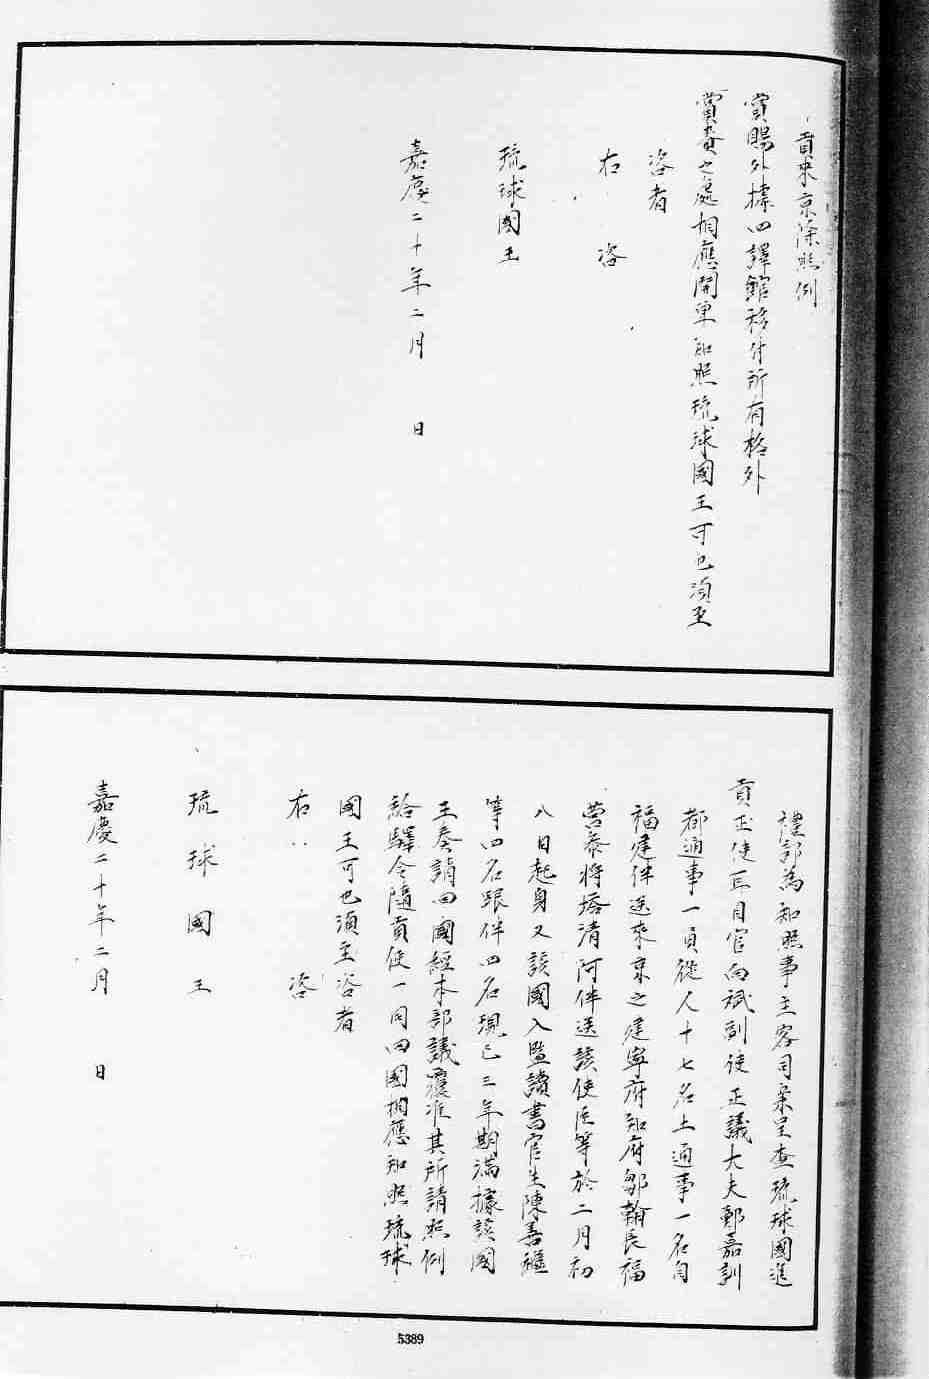 貢來京除照例
賞賜外據四譯館移付所有格外
賞賚之處相應開單知照琉球國王可也須至
咨者
右咨
琉球國王
嘉慶二十年二月　日
禮部為知照事主客司案呈查琉球國進
貢正使耳目官向斌副使正議大夫鄭嘉訓
都通事一員從人十七名土通事一名自
福建伴送來京之建寧府知府鄒翰長福
營參將塔清阿伴送該使臣等於二月初
八日起身又該國入監讀書官生陳善繼
等四名跟伴四名現已三年期滿據該國
王奏請回國經本部議覆准其所請照例
給驛令隨貢使一同回國相應知照琉球
國王可也須至咨者
右咨
琉球國王
嘉慶二十年二月　日
5389